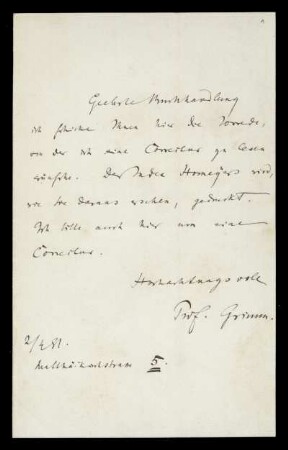 Geehrte Buchhandlung
ich schicke Ihnen hier die Vorrede,
von der ich eine Correctur zu lesen
wünsche. Der Index Homeyers wird,
wie Sie daraus ersehen, gedruckt.
Ich bitte auch hier um eine
Correctur.
Hochachtungsvoll
Prof. Grimm.
2/4 81.
Matthäikirchstrasse 5.